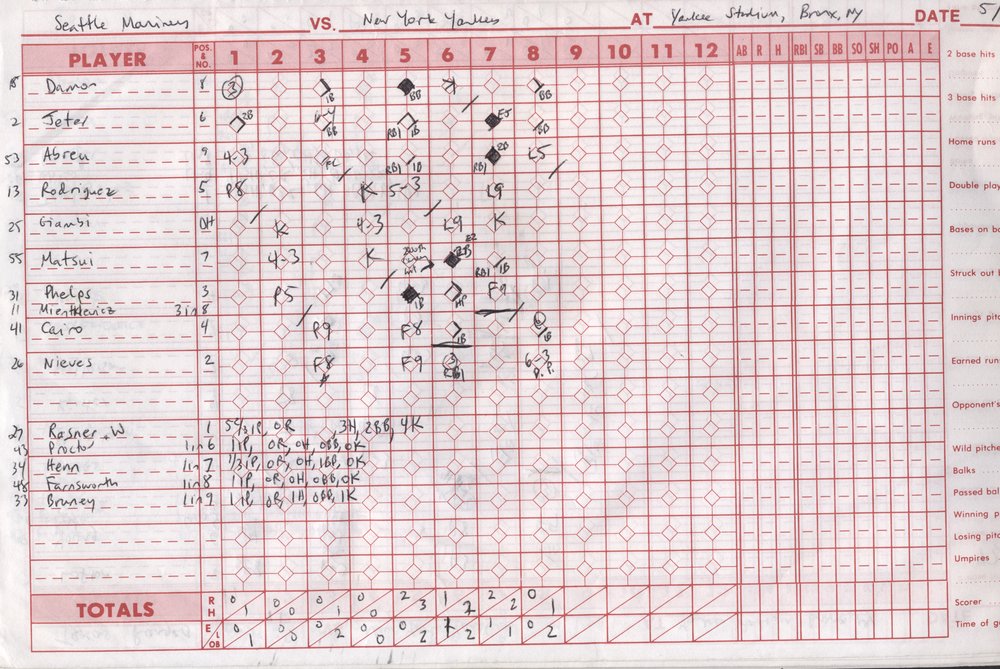 Seattle Mariners VS. New York Yankees AT Yankee Stadium, Bronx, NY DATE 5/
PLAYER POS. & NO. 1 2 3 4 5 6 7 8 9 10 11 12 AB R H RBI SB BB SO SH PO A E
2 base hits
18 Damon 8 3 1B BB K BB
3 base hits
2 Jeter 6 2B BB RBI 1B E5 BB
53 Abreu 9 4-3 FC RBI 1B RBI 2B L5
Home runs
13 Rodriguez 5 F8 K 5-3 L9
Double play
25 Giambi DH K 4-3 L9 K
Bases on ba
55 Matsui 7 4-3 K BB RBI 1B
Struck out b
31 Phelps 3 P5 1B HP F9
11 Mientkiewicz 3 in 8
Innings pitc
41 Cairo 4 P9 F8 1B 1B
26 Nieves 2 F8 F9 3 RBI 6-3 D.P.
Earned run
Opponent's
27 Rasner W 1 5 2/3 IP, 0R, 3H, 2BB, 4K
43 Proctor 1 in 6 1 IP, 0R, 0H, 0BB, 0K
Wild pitche
34 Henn 1 in 7 1/3 IP, 0R, 0H, 1BB, 0K
Balks
48 Farnsworth 1 in 8 1 IP, 0R, 0H, 0BB, 0K
Passed bal
33 Bruney 1 in 9 1 IP, 0R, 1H, 0BB, 1K
Winning p
Losing pitc
Umpires
TOTALS R H 0 1 0 0 0 1 0 0 2 3 1 2 2 2 0 1
Scorer
E LOB 0 1 0 0 0 2 0 0 0 2 1 2 1 1 0 2
Time of g